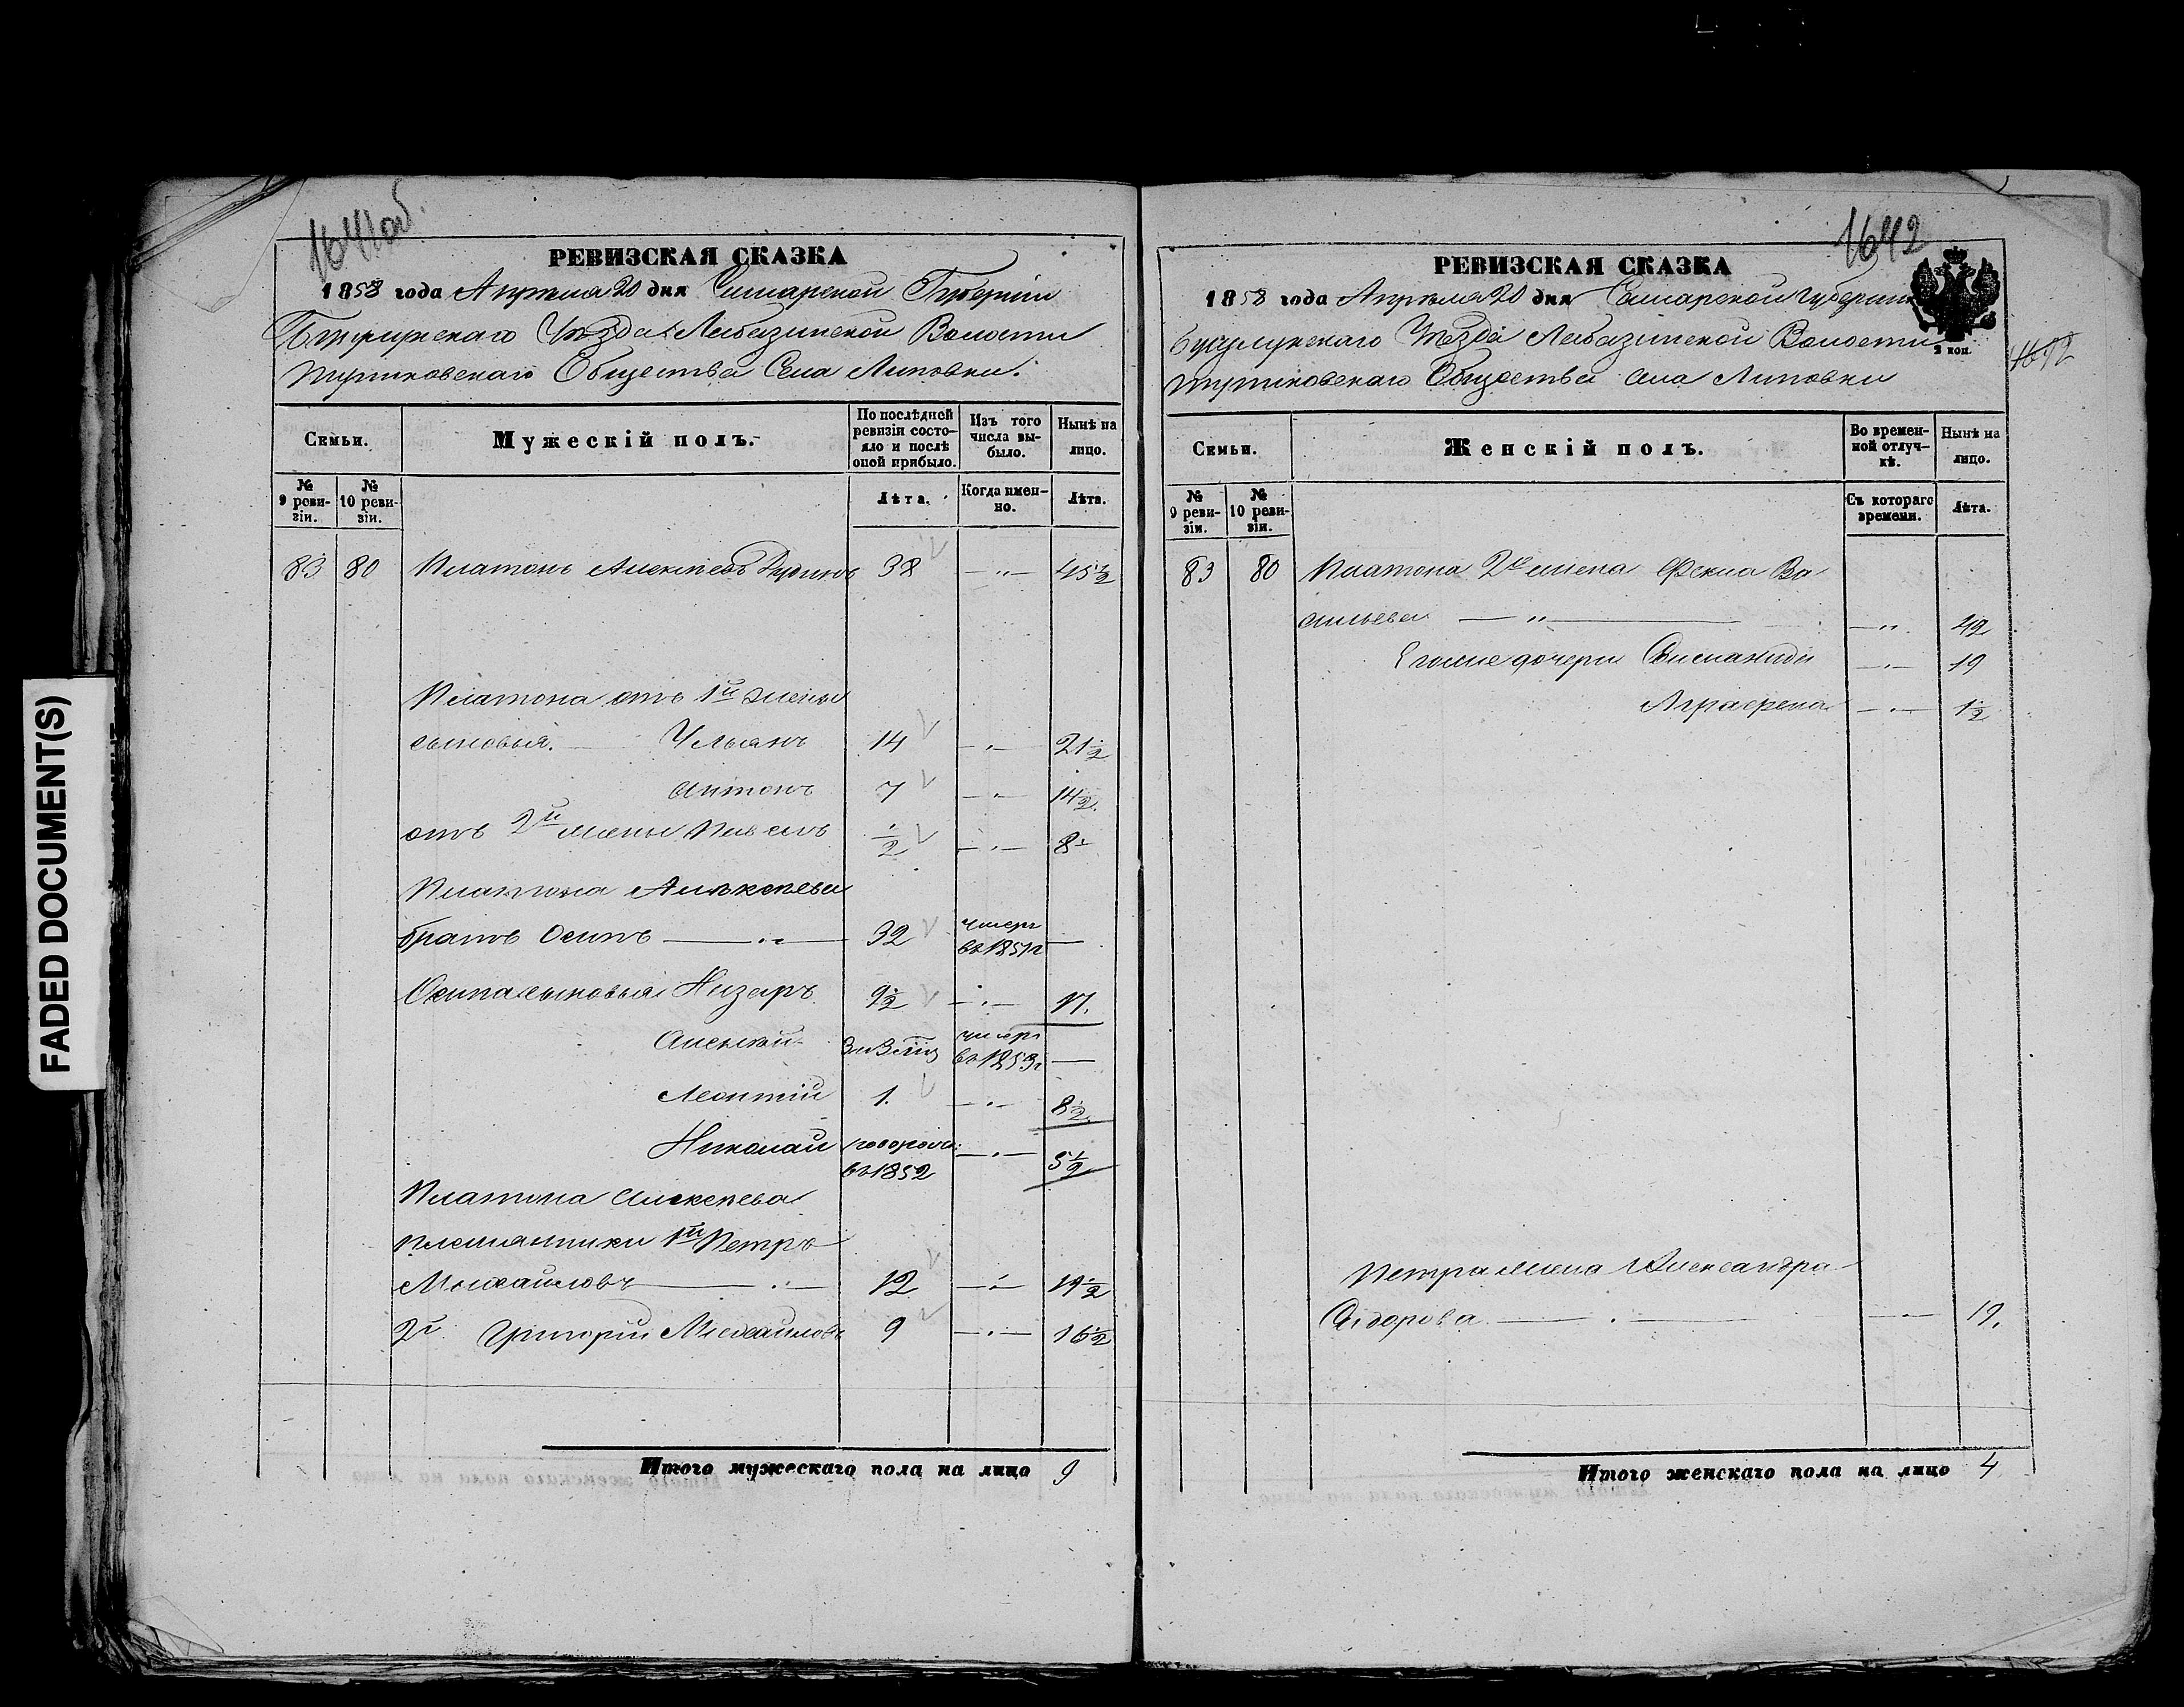 FADED DOCUMENT(S)
1641 об.
РЕВИЗСКАЯ СКАЗКА
1858 года Апрѣля 20 дня Самарской Губерніи
Бузулукскаго Уѣзда Лабазинской Волости
Общества Села Липовки.
Семьи.
Мужескій полъ.
По послѣдней ревизіи состояло и послѣ оной прибыло.
Изъ того числа выбыло.
Нынѣ на лицо.
№ 9 ревизіи.
№ 10 ревизіи.
Лѣта.
Когда именно.
Лѣта.
83 80 Платонъ Алексѣевъ 38 — " — 45 1/2
Платона отъ 1й жены
сыновья. — Ульянъ 14 — " — 21 1/2
Антонъ 7 — " — 14 1/2.
отъ 2й жены Павелъ 1/2 — " — 8
Платона Алексѣева
братъ Осипъ — " — 32 умеръ въ 1851 г —
Осипа сыновья Назаръ 9 1/2 — " — 17.
Алексѣй умеръ въ 1853 г —
Леонтій 1. — " — 8 1/2.
Николай новорож: въ 1852 — " — 5 1/2
Платона Алексѣева
племянники 1й Петръ
Михайловъ — " — 12 — " — 19 1/2
2й Григорій Михайловъ 9 — " — 16 1/2
Итого мужескаго пола на лицо 9
1642
РЕВИЗСКАЯ СКАЗКА
1858 года Апрѣля 20 дня Самарской Губерніи
2 коп.
Бузулукскаго Уѣзда Лабазинской Волости
Общества Села Липовки
Семьи.
Женскій полъ.
Во временной отлучкѣ.
Нынѣ на лицо.
№ 9 ревизіи.
№ 10 ревизіи.
Съ котораго времени.
Лѣта.
83 80 Платона 2я жена Фекла Ва
сильева — " — — " — 42
дочери — " — 19
Аграфена — " — 1 1/2
Петра жена Александра
Сидорова — " — — 19.
Итого женскаго пола на лицо 4